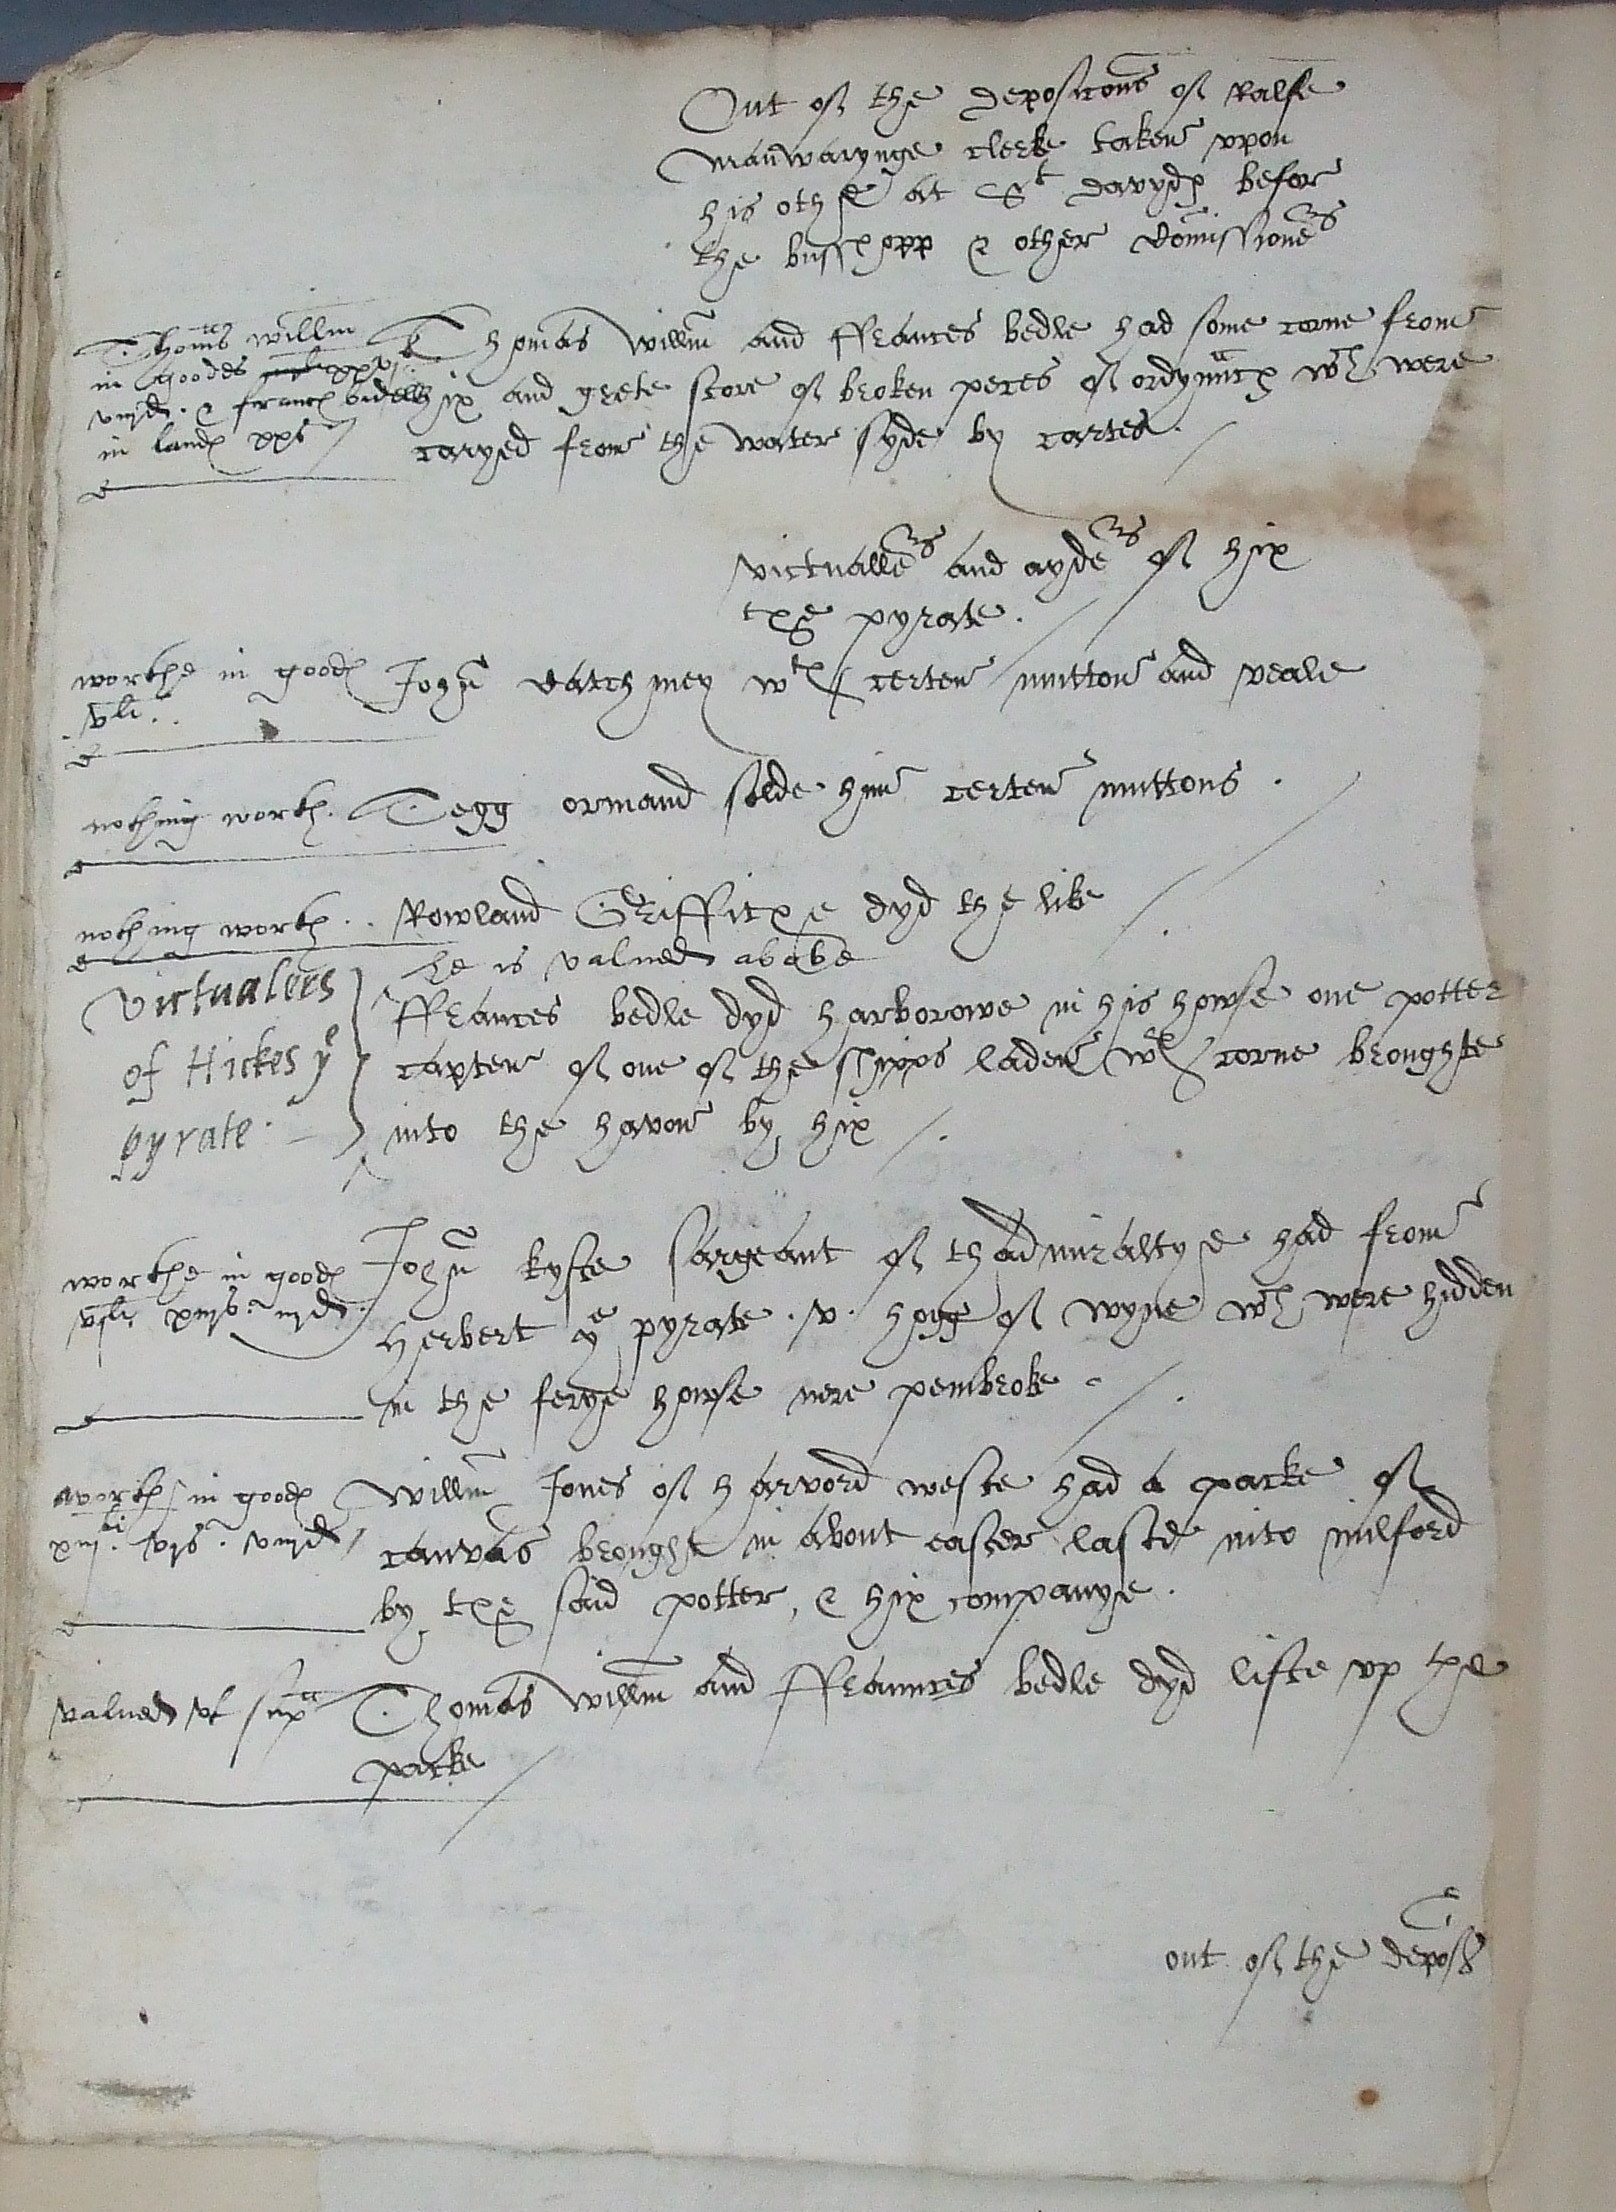 Out of the deposicons of Ralfe
manwarynge clerke taken vpon
his othe at St davyds befor
the busshopp & other Comissioners
Thoms willm
in goodes
viijd. & francs bidell
in lands xxs
Thomas Willm and ffrances bedle had some corne from
hix and grete store of broken peces of ordynnce wch were
caryed from the water syde by cartes
victuallers and ayders of hix
the pyrate.
worthe in goods
vli.
John Catchmey wth certen mutton and veale
nothing worth.
Tegg ormand solde him certen muttons.
nothing worth..
Rowland Griffithe dyd the like
he is valued above
Victualers
of Hickes ye
pyrate.
ffrances bedle dyd harborowe in his howse one potter
capten of one of the shipps laden wth corne broughte
into the haven by hix
worthe in goods
vjli xiijs. iiijd.
John kyfte sargeant of thadmiraltye had from
Herbert ye pyrate .v. hogg of wyne wch were hidden
in the ferye howse nere pembroke
worth in goods
xiijli. vjs. viijd
Willm Jones of harvord weste had a packe of
canvas brought in about easter laste into milford
by the said potter, & hix companye.
valued vt supa
Thomas willm and ffraunces bedle dyd lifte vp the
packe
out of the depos